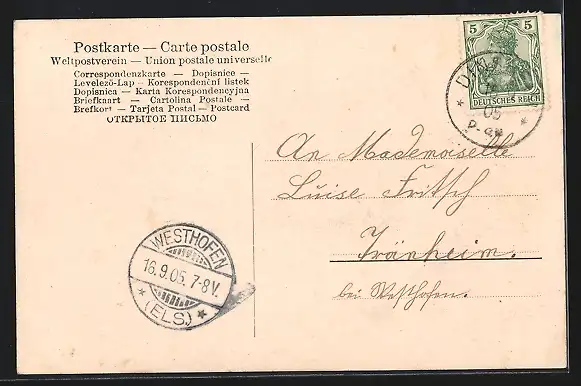 Postkarte — Carte postale
Weltpostverein — Union postale universelle
Correspondenzkarte — Dopisnice —
Levelező-Lap — Korespondenční listek
Dopisnica — Karta Korespondencyjna
Briefkaart — Cartolina Postale —
Brefkort — Tarjeta Postal — Postcard
ОТКРЫТОЕ ПИСЬМО
5 5
DEUTSCHES REICH
05
An Mademoiselle
Luise Fritsch
Tränheim.
bei Westhofen.
WESTHOFEN
16.9.05. 7-8V.
* (ELS.) *